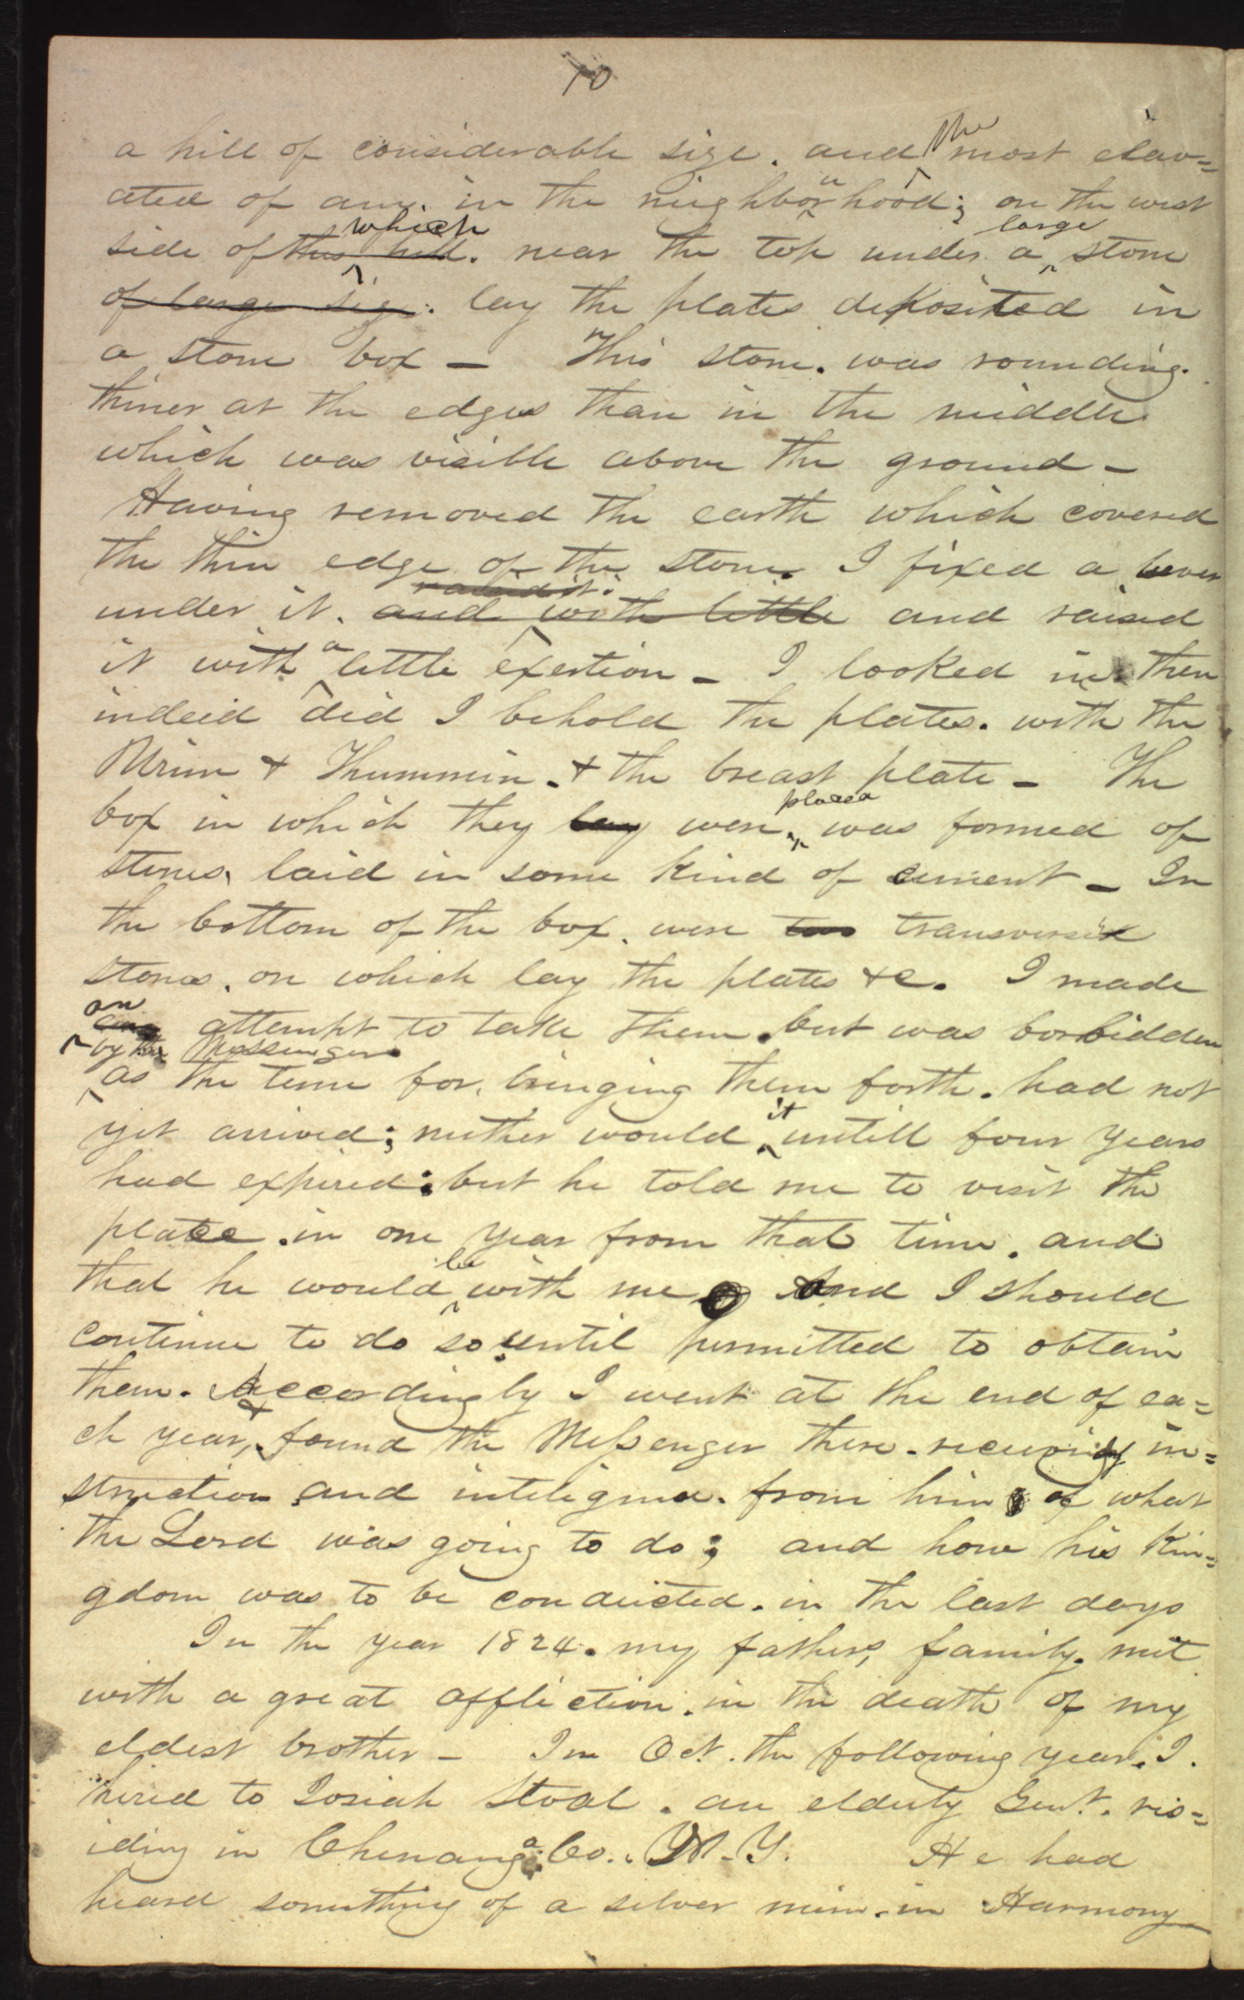 10
a hill of considerable size. and the most elav=
ated of any. in the neighborhood; on the west
side of this hill. which near the top under a large stone
of large size. lay the plates deposited in
a stone box — This stone. was rounding.
thiner at the edges than in the middle
which was visible above the ground —
Having removed the earth which covered
the thin edge of the stone. I fixed a lever
under it. and with little and raised
it with a little exertion — I looked in then
indeid did I behold the plates. with the
Urim & Thummin. & the breast plate — The
box in which they lay were placed was formed of
stones, laid in some kind of cement — In
the bottom of the box. were two transverse
stones. on which lay the plates &c. I made
an attempt to take them. but was forbidden
by the Messenger.
as the time for. bringing them forth. had not
yet arrived; neither would it untill four years
had expired; but he told me to visit the
place. in one year from that time. and
that he would be with me And I should
continue to do so until permitted to obtain
them. Accordingly I went at the end of ea=
ch year, & found the Messenger there. receiving in=
struction and inteligence. from him of what
the Lord was going to do; and how his Kin=
gdom was to be conducted. in the last days
In the year 1824. my fathers, family. met
with a great affliction. in the death of my
eldest brother — In Oct. the following year. I.
hired to Josiah Stoal. an elderly Gent. res=
iding in Chenango Co.. N.Y. He had
heard something of a silver mine. in Harmony